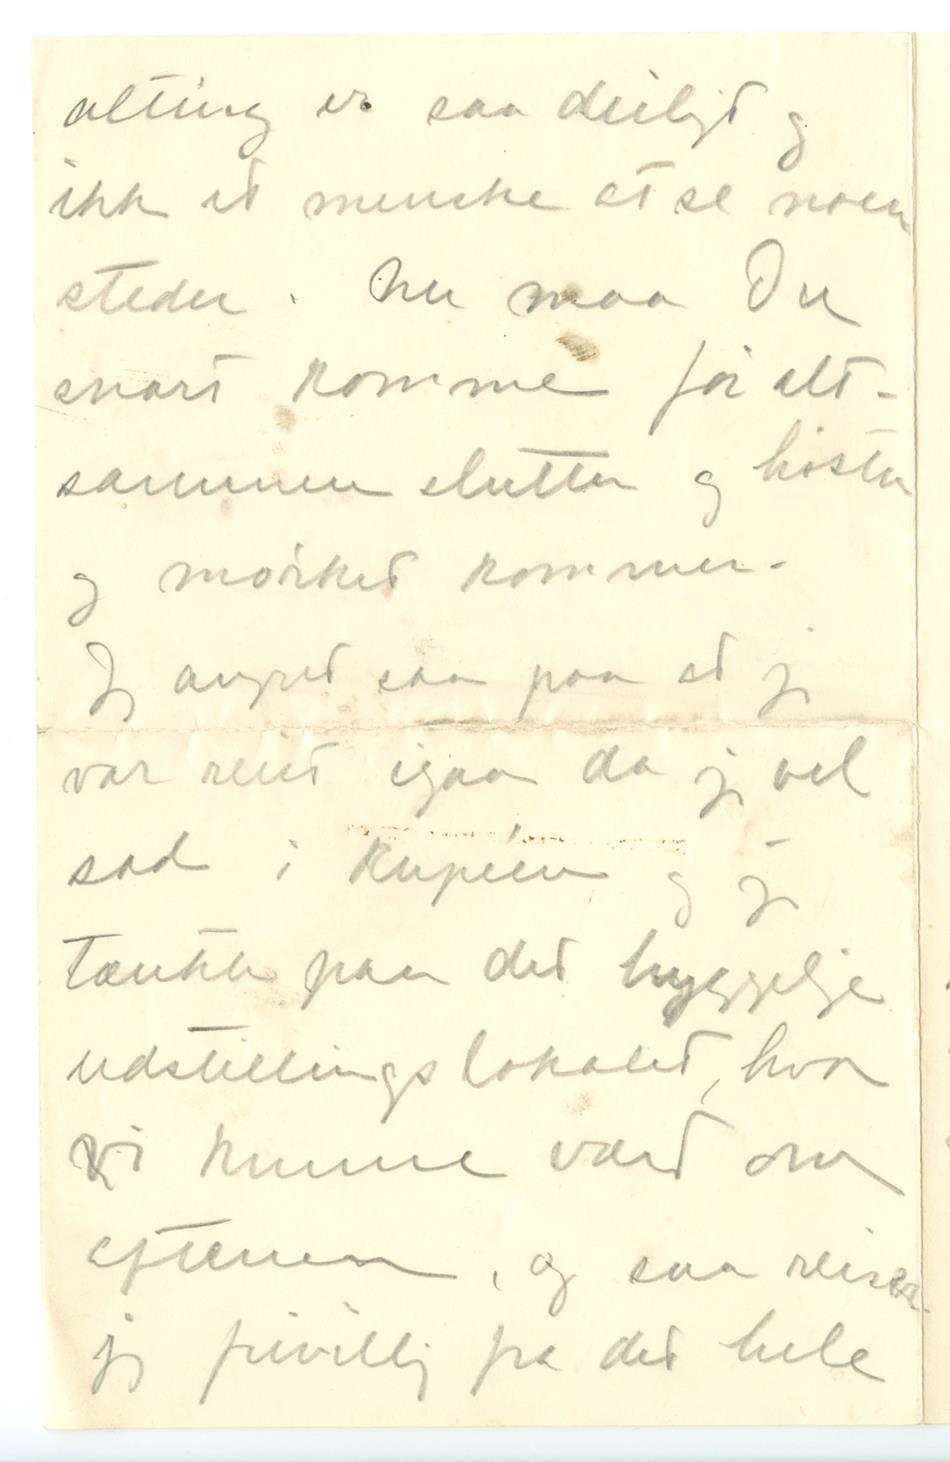 alting er saa deiligt og
ikke et menneske at se noen
steder. Nu maa Du
snart komme før alt-
sammen slutter og høsten
og mørket kommer.
Jeg angret saa paa at jeg
var reist igaar da jeg vel
sad i kupéen og jeg
tænkte paa det hyggelige
udstillingslokalet, hvor
vi kunne været om
aftenen, og saa reiser
jeg frivillig fra det hele